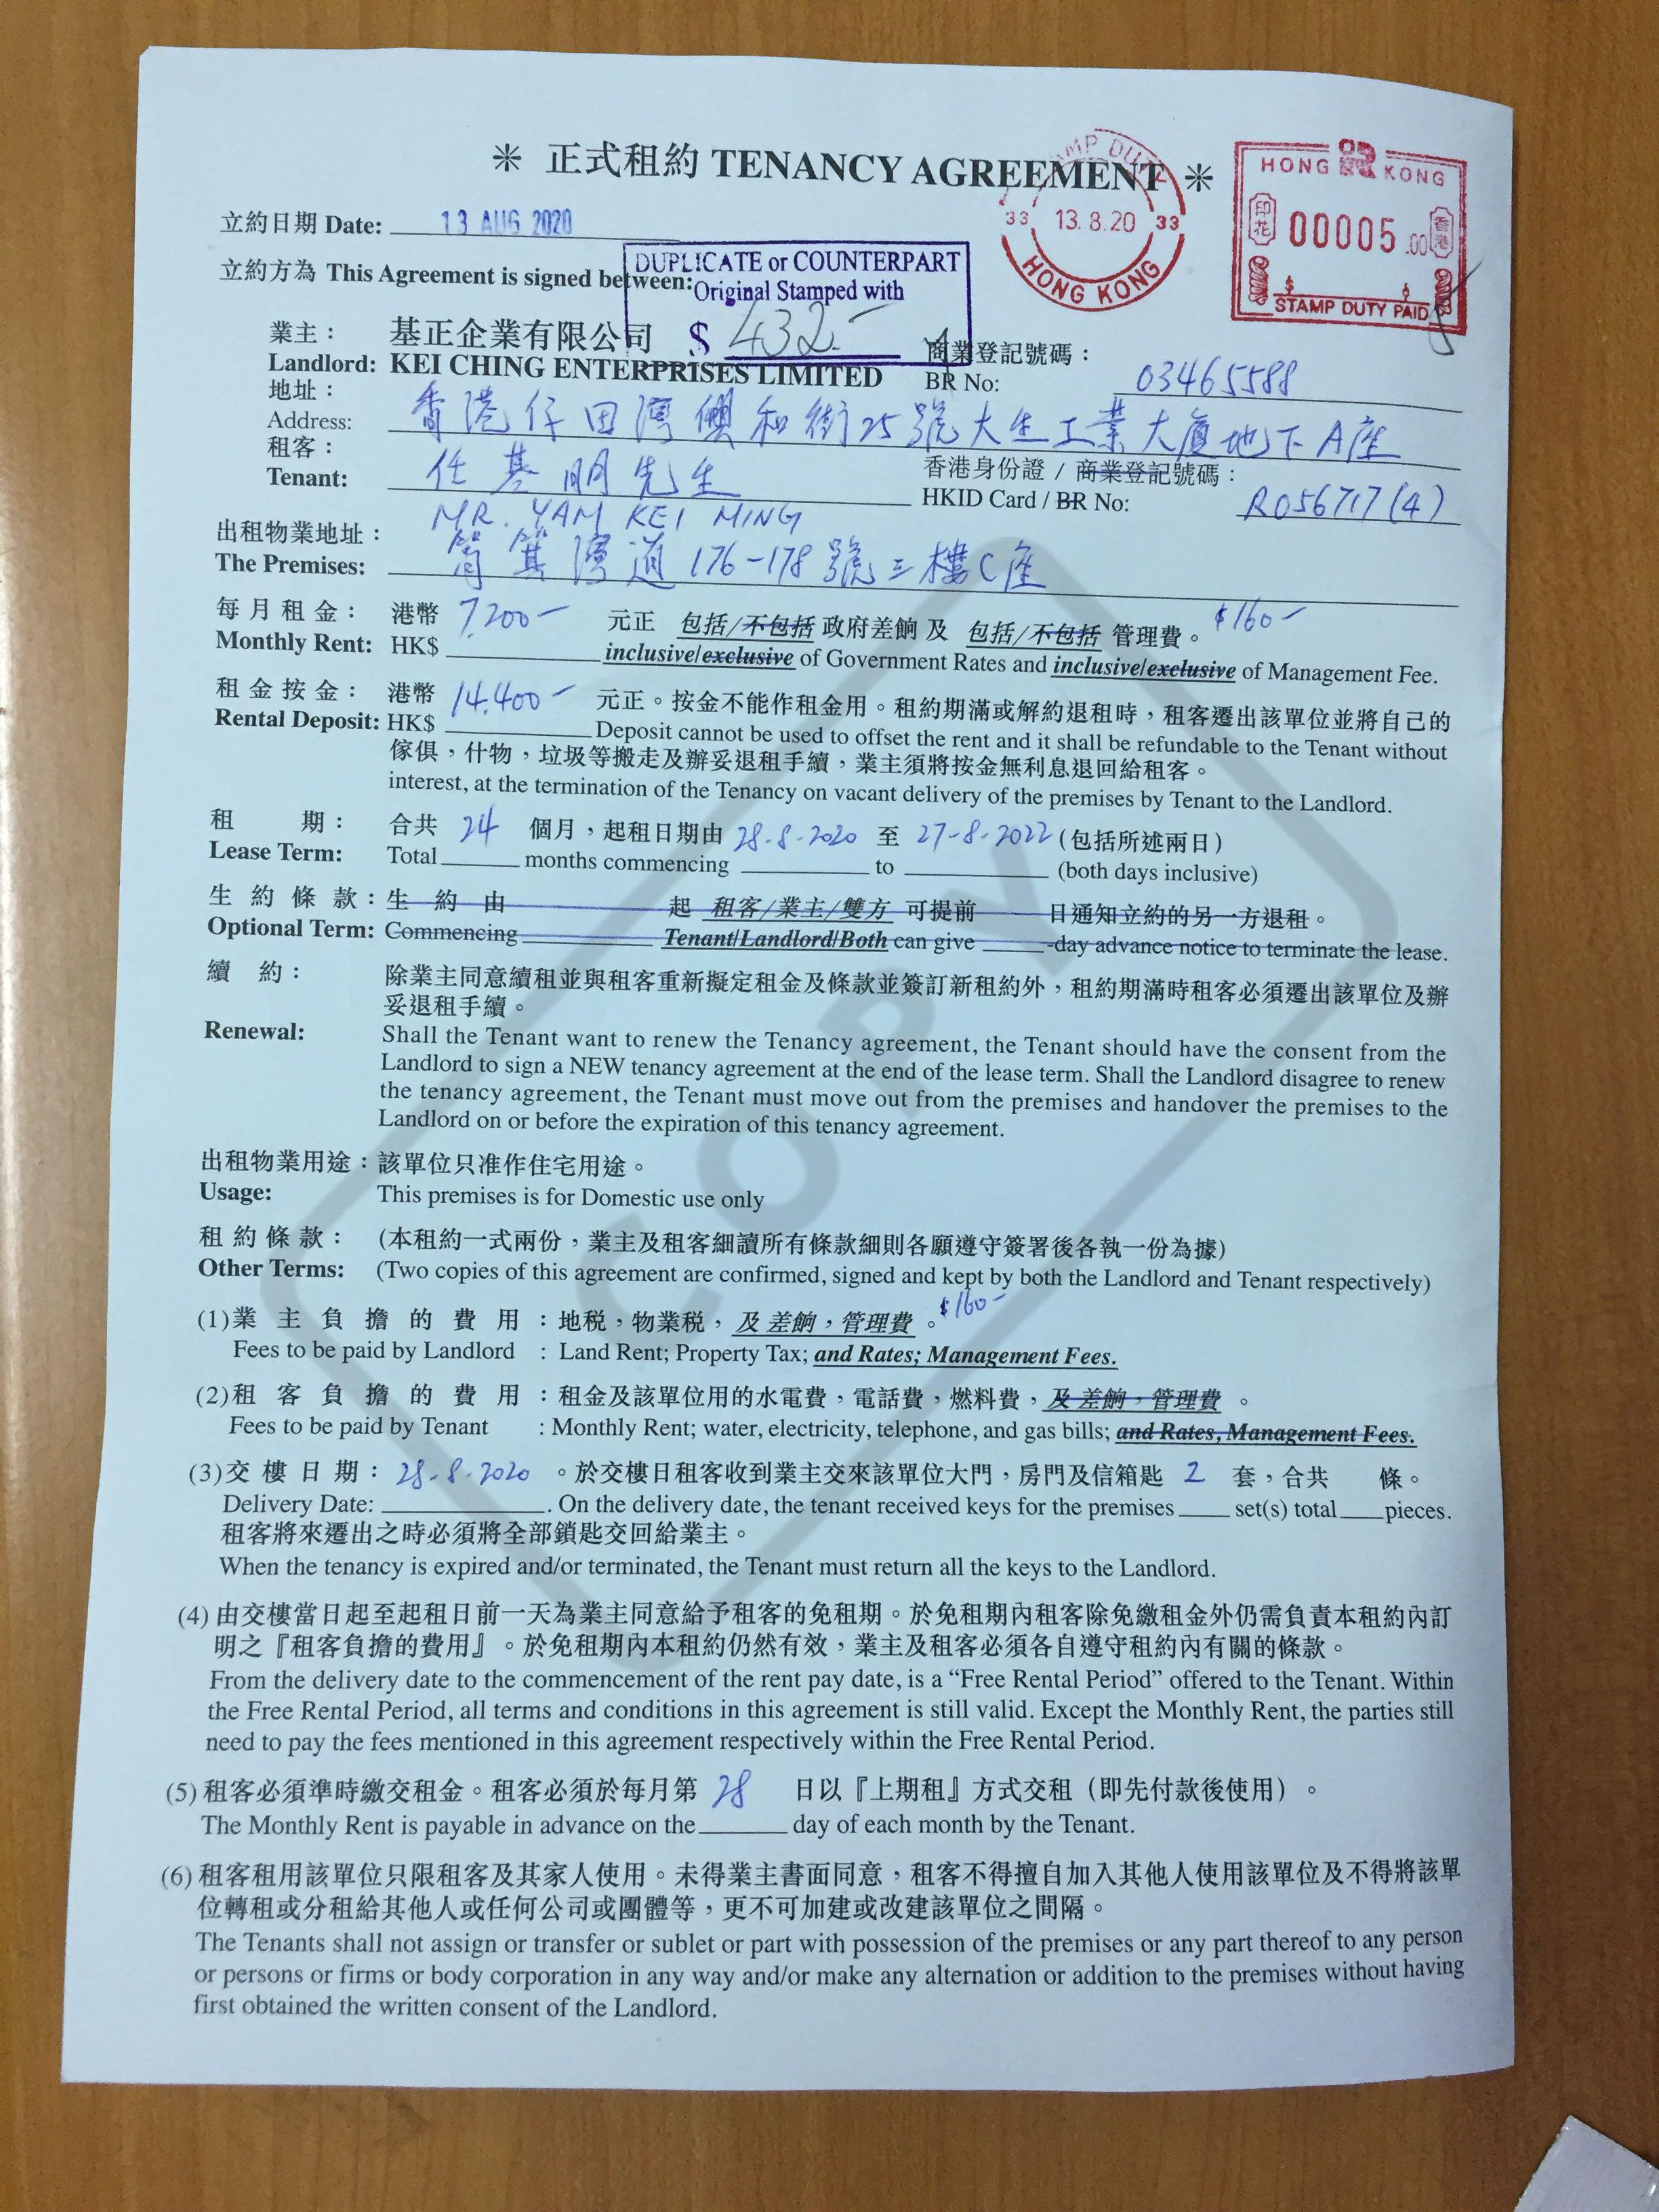 ✳ 正式租約 TENANCY AGREEMENT ✳
STAMP DUTY
33 13.8.20 33
HONG KONG
HONG KONG
印花 00005.00 香港
STAMP DUTY PAID
立約日期 Date: 13 AUG 2020
立約方為 This Agreement is signed between:
DUPLICATE or COUNTERPART
Original Stamped with
$ 432-
業主： 基正企業有限公司 商業登記號碼：
Landlord: KEI CHING ENTERPRISES LIMITED BR No: 03465588
地址：
Address: 香港仔田灣興和街25號大生工業大廈地下A座
租客： 香港身份證 / 商業登記號碼：
Tenant: 任基明先生 HKID Card / BR No: R056717(4)
MR. YAM KEI MING
出租物業地址：
The Premises: 筲箕灣道176-178號三樓C座
每月租金： 港幣 7,200- 元正 包括/不包括 政府差餉 及 包括/不包括 管理費。 $160-
Monthly Rent: HK$ inclusive/exclusive of Government Rates and inclusive/exclusive of Management Fee.
租金按金： 港幣 14,400- 元正。按金不能作租金用。租約期滿或解約退租時，租客遷出該單位並將自己的
Rental Deposit: HK$ Deposit cannot be used to offset the rent and it shall be refundable to the Tenant without
傢俱，什物，垃圾等搬走及辦妥退租手續，業主須將按金無利息退回給租客。
interest, at the termination of the Tenancy on vacant delivery of the premises by Tenant to the Landlord.
租 期： 合共 24 個月，起租日期由 28-8-2020 至 27-8-2022 (包括所述兩日)
Lease Term: Total months commencing to (both days inclusive)
生約條款：生約由 起 租客/業主/雙方 可提前 日通知立約的另一方退租。
Optional Term: Commencing Tenant/Landlord/Both can give -day advance notice to terminate the lease.
續約： 除業主同意續租並與租客重新擬定租金及條款並簽訂新租約外，租約期滿時租客必須遷出該單位及辦
妥退租手續。
Renewal: Shall the Tenant want to renew the Tenancy agreement, the Tenant should have the consent from the
Landlord to sign a NEW tenancy agreement at the end of the lease term. Shall the Landlord disagree to renew
the tenancy agreement, the Tenant must move out from the premises and handover the premises to the
Landlord on or before the expiration of this tenancy agreement.
出租物業用途：該單位只准作住宅用途。
Usage: This premises is for Domestic use only
租約條款： (本租約一式兩份，業主及租客細讀所有條款細則各願遵守簽署後各執一份為據)
Other Terms: (Two copies of this agreement are confirmed, signed and kept by both the Landlord and Tenant respectively)
(1)業主負擔的費用：地税，物業税，及 差餉，管理費。$160-
Fees to be paid by Landlord : Land Rent; Property Tax; and Rates; Management Fees.
(2)租客負擔的費用：租金及該單位用的水電費，電話費，燃料費，及 差餉，管理費。
Fees to be paid by Tenant : Monthly Rent; water, electricity, telephone, and gas bills; and Rates, Management Fees.
(3)交樓日期：28-8-2020。於交樓日租客收到業主交來該單位大門，房門及信箱匙 2 套，合共 條。
Delivery Date: . On the delivery date, the tenant received keys for the premises set(s) total pieces.
租客將來遷出之時必須將全部鎖匙交回給業主。
When the tenancy is expired and/or terminated, the Tenant must return all the keys to the Landlord.
(4) 由交樓當日起至起租日前一天為業主同意給予租客的免租期。於免租期內租客除免繳租金外仍需負責本租約內訂
明之『租客負擔的費用』。於免租期內本租約仍然有效，業主及租客必須各自遵守租約內有關的條款。
From the delivery date to the commencement of the rent pay date, is a “Free Rental Period” offered to the Tenant. Within
the Free Rental Period, all terms and conditions in this agreement is still valid. Except the Monthly Rent, the parties still
need to pay the fees mentioned in this agreement respectively within the Free Rental Period.
(5) 租客必須準時繳交租金。租客必須於每月第 28 日以『上期租』方式交租（即先付款後使用）。
The Monthly Rent is payable in advance on the day of each month by the Tenant.
(6) 租客租用該單位只限租客及其家人使用。未得業主書面同意，租客不得擅自加入其他人使用該單位及不得將該單
位轉租或分租給其他人或任何公司或團體等，更不可加建或改建該單位之間隔。
The Tenants shall not assign or transfer or sublet or part with possession of the premises or any part thereof to any person
or persons or firms or body corporation in any way and/or make any alternation or addition to the premises without having
first obtained the written consent of the Landlord.
COPY